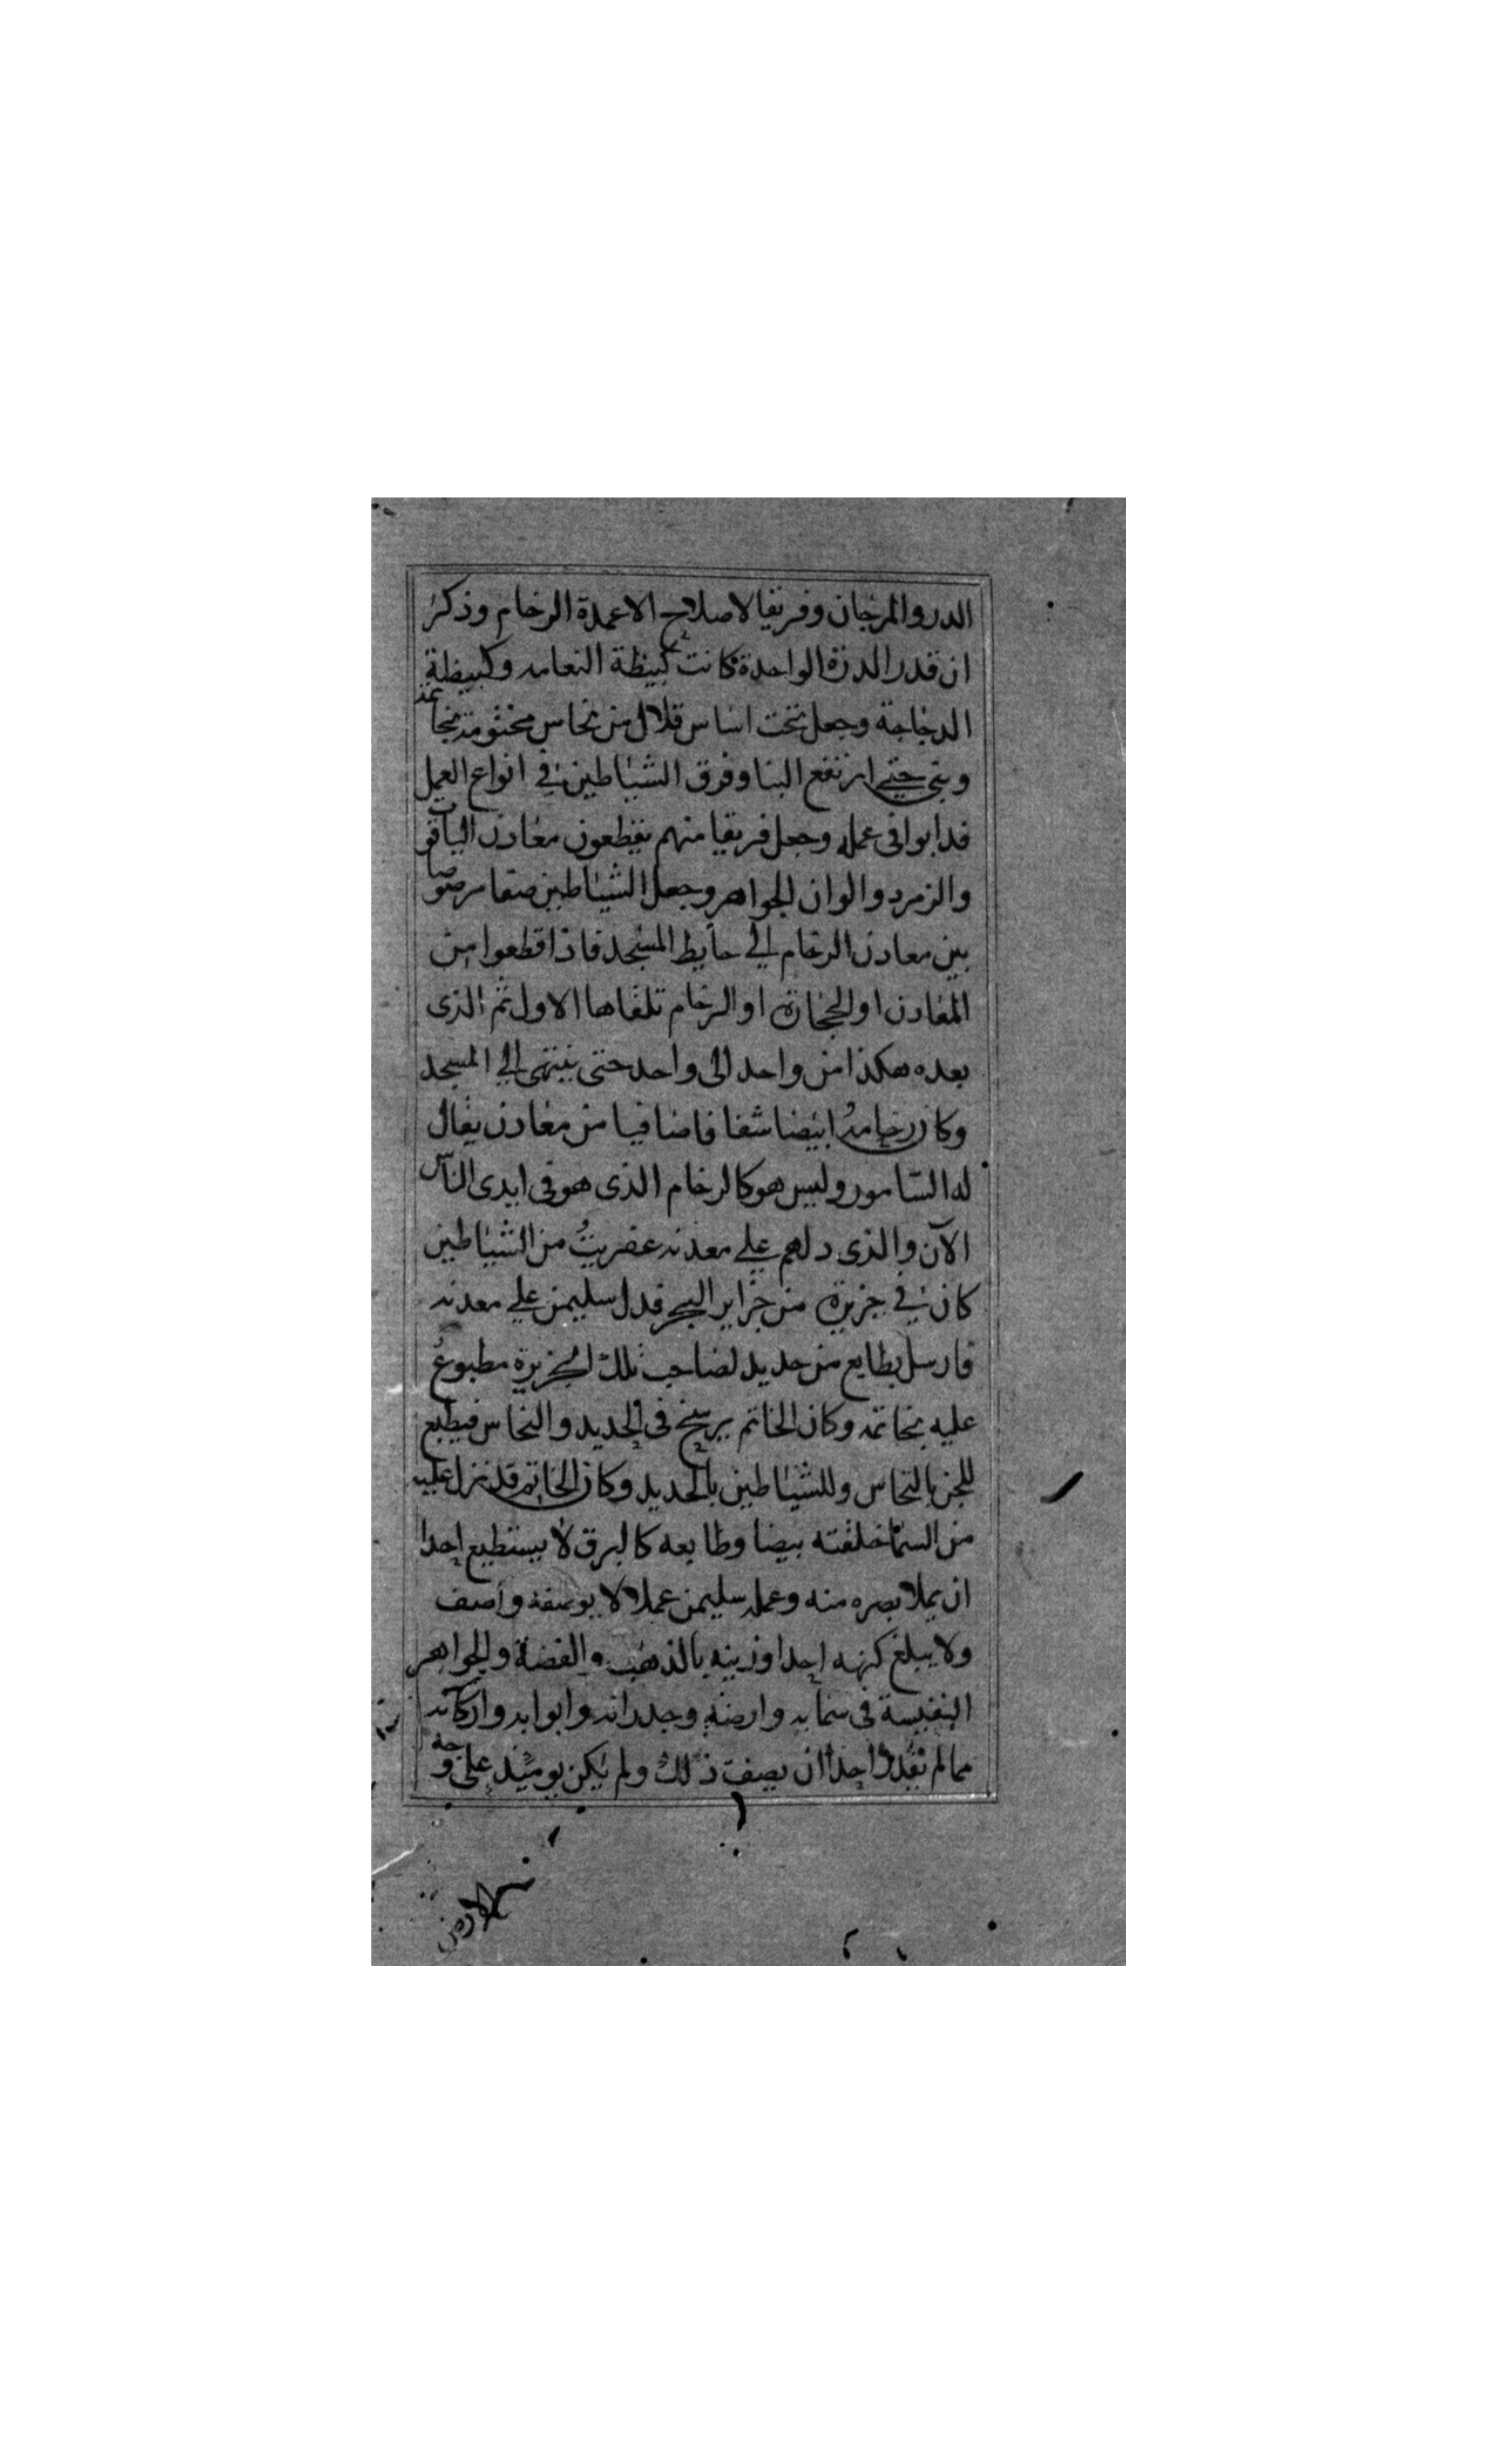 الدر والمرجان وفريقا لاصلاح الاعمدة الرخام وذكر
ان قدر الدرة الواحدة كانت كبيظة النعامه وكبيظة
الدجاجة وجعل تحت اساس قلال من نحاس مختومة بخاتمه
وبني حتي ارتفع البنا وفرق الشياطين في انواع العمل
فدابوا في عمله وجعل فريقا منهم يقطعون معادن الياقوت
والزمرد والوان الجواهر وجعل الشياطين صفا مرصوصا
بين معادن الرخام الي حايط المسجد فاذا قطعوا من
المعادن او الحجارة او الرخام تلقاها الاول ثم الذى
بعده هكذا من واحد الى واحد حتى ينتهى الي المسجد
وكان رخامه ابيضا شفافا صافيا من معادن يقال
له السامور وليس هو كالرخام الذى هو فى ايدى الناس
الآن والذى دلهم علي معدنه عفريت من الشياطين
كان في جزيرة من جزاير البحر فدل سليمن علي معدنه
فارسل بطابع من حديد لصاحب تلك الجزيرة مطبوع
عليه بخاتمه وكان الخاتم يرسخ فى الحديد والنحاس فيطبع
للجن بالنحاس وللشياطين بالحديد وكان الخاتم قد نزل عليه
من السما خلقته بيضا وطابعه كالبرق لا يستطيع احدا
ان يملا بصره منه وعمله سليمن عملا لا يوصفه واصف
ولا يبلغ كنهه احدا وزينه بالذهب والفضة والجواهر
النفيسة فى سمايه وارضه وجدرانه وابوابه واركانه
مما لم يقدر احدا ان يصف ذلك ولم يكن يوميذ على وجه
الارض